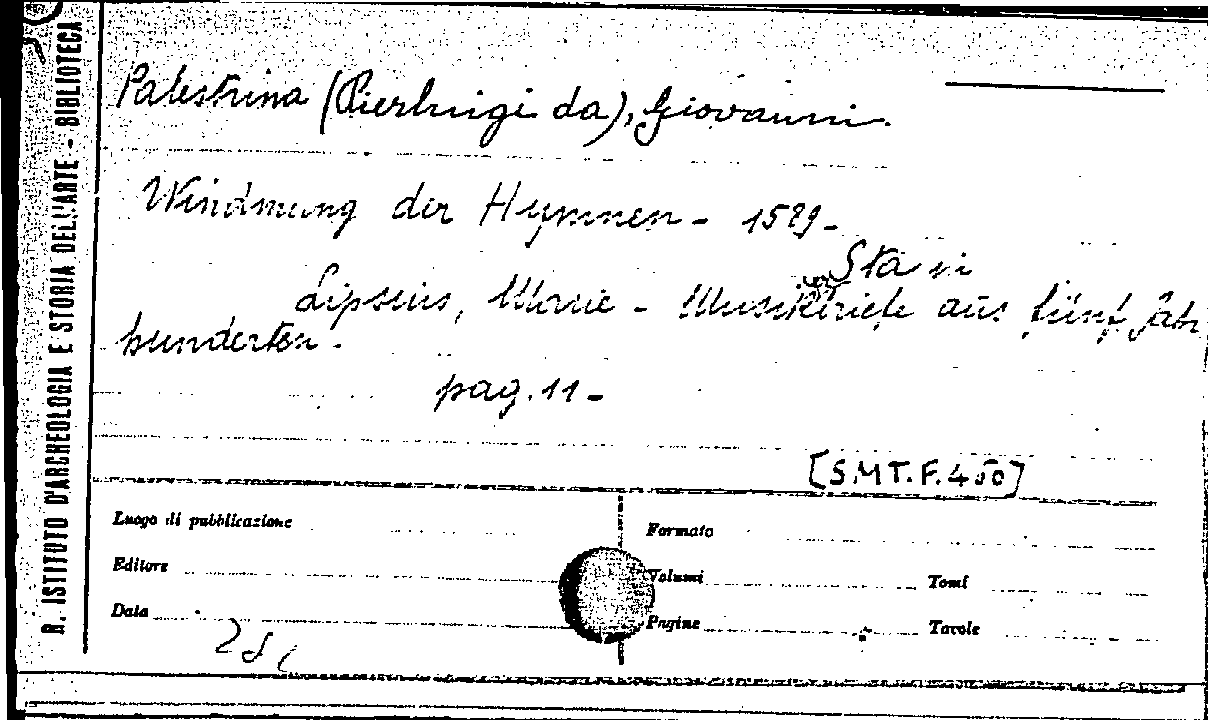 R. ISTITUTO D'ARCHEOLOGIA E STORIA DELL'ARTE - BIBLIOTECA
Palestrina (Pierluigi da), Giovanni.
Windmung der Hymnen - 1589 -
Sta in
Lipsius, Marie - Musikbriefe aus fünf Jahr
hunderten.
pag. 11 -
[S.M.T.F. 450]
Luogo di pubblicazione
Formato
Editore
Volumi
Tomi
Data
Pagine
Tavole